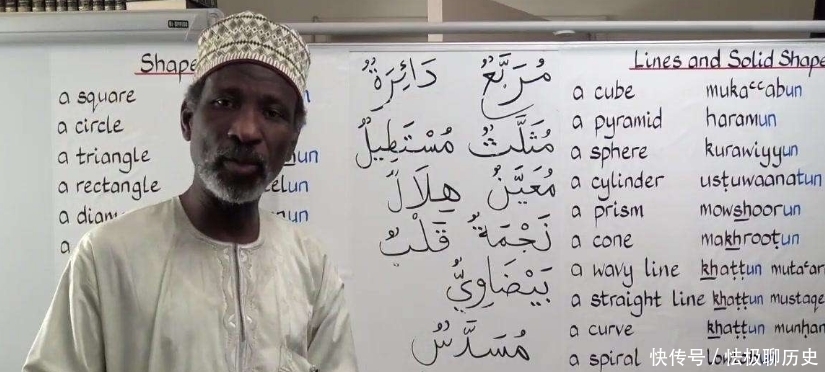 Shape
a square
a circle
a triangle
a rectangle
a
مُرَبَّعٌ دَائِرَةٌ
مُثَلَّثٌ مُسْتَطِيلٌ
مُعَيَّنٌ هِلَالٌ
نَجْمَةٌ قَلْبٌ
بَيْضَاوِيٌّ
مُسَدَّسٌ
Lines and Solid Shape
a cube mukaᶜᶜabun
a pyramid haramun
a sphere kurawiyyun
a cylinder usṭuwaanatun
a prism mowshoorun
a cone makhrooṭun
a wavy line khaṭṭun
a straight line khaṭṭun
a curve khaṭṭun
a spiral
快传号／怯极聊历史